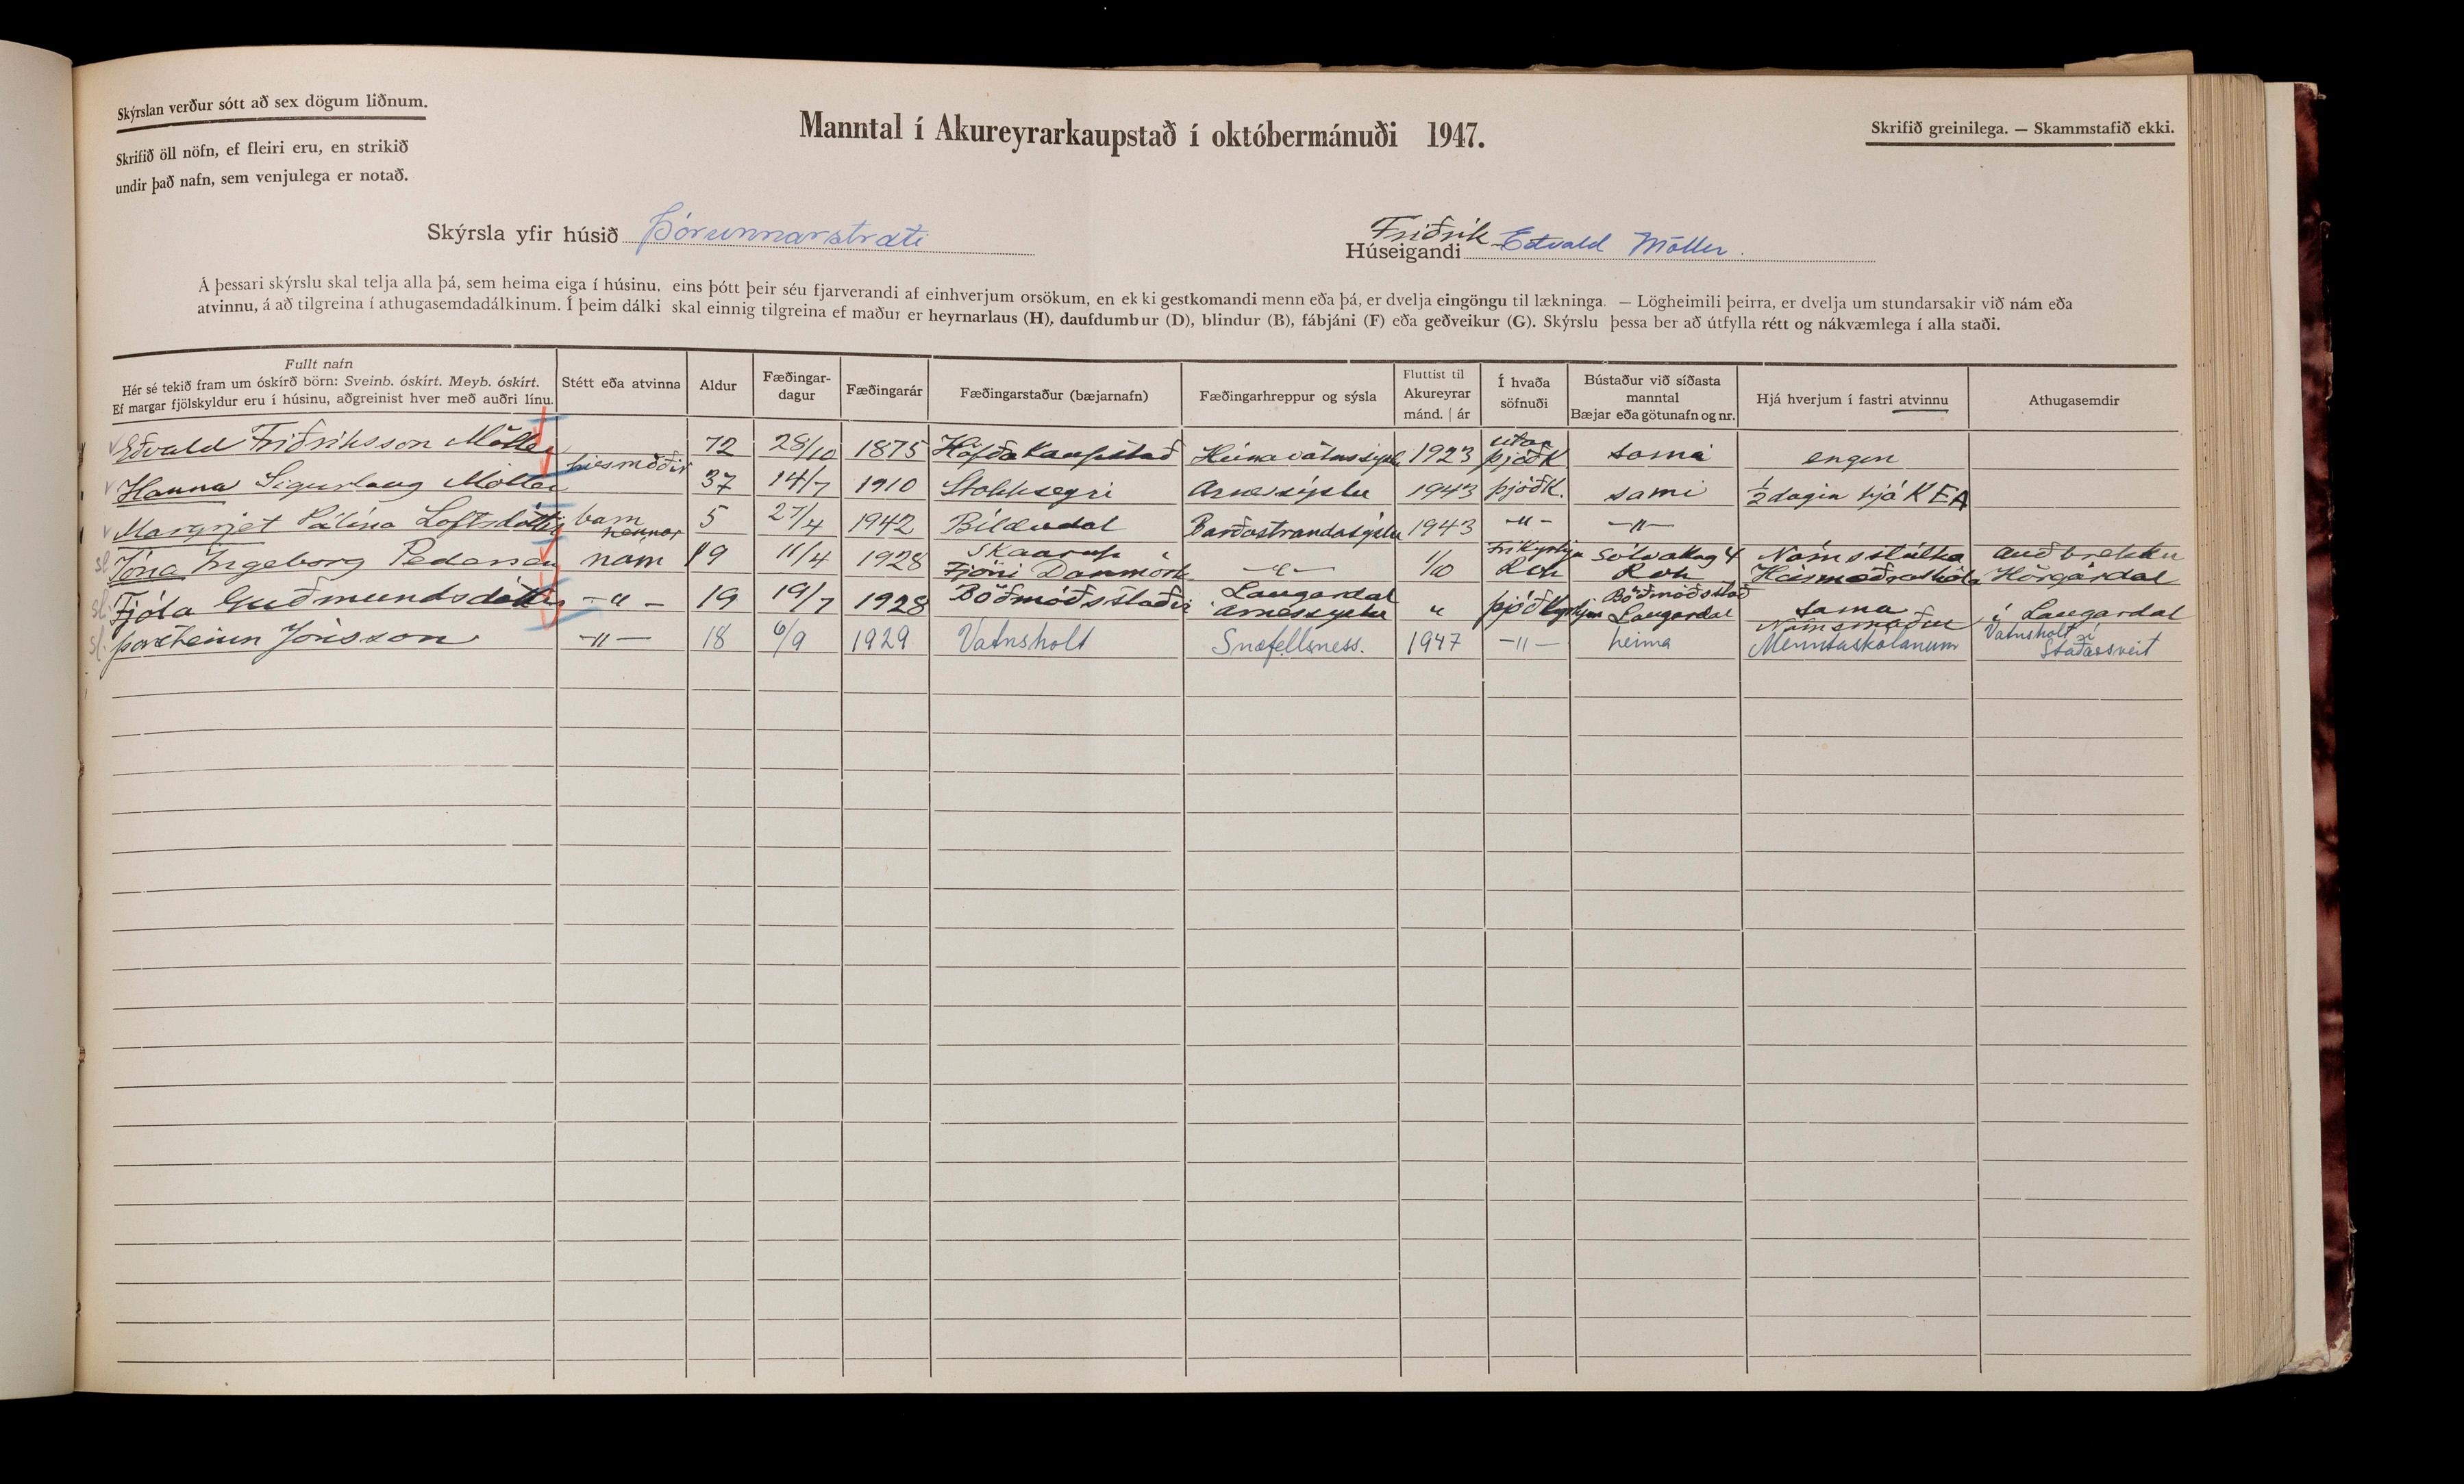 Skýrslan verður sótt að sex dögum liðnum.
Skrifið öll nöfn, ef fleiri eru, en strikið
undir það nafn, sem venjulega er notað.
Manntal í Akureyrarkaupstað í októbermánuði 1947.
Skrifið greinilega. — Skammstafið ekki.
Skýrsla yfir húsið Þórunnarstræti
Húseigandi Friðrik Edvald Möller.
Á þessari skýrslu skal telja alla þá, sem heima eiga í húsinu, eins þótt þeir séu fjarverandi af einhverjum orsökum, en ekki gestkomandi menn eða þá, er dvelja eingöngu til lækninga. — Lögheimili þeirra, er dvelja um stundarsakir við nám eða
atvinnu, á að tilgreina í athugasemdadálkinum. Í þeim dálki skal einnig tilgreina ef maður er heyrnarlaus (H), daufdumbur (D), blindur (B), fábjáni (F) eða geðveikur (G). Skýrslu þessa ber að útfylla rétt og nákvæmlega í alla staði.
Fullt nafn
Hér sé tekið fram um óskírð börn: Sveinb. óskírt. Meyb. óskírt.
Ef margar fjölskyldur eru í húsinu, aðgreinist hver með auðri línu.
Stétt eða atvinna
Aldur
Fæðingar-
dagur
Fæðingarár
Fæðingarstaður (bæjarnafn)
Fæðingarhreppur og sýsla
Fluttist til
Akureyrar
mánd. | ár
Í hvaða
söfnuði
Bústaður við síðasta
manntal
Bæjar eða götunafn og nr.
Hjá hverjum í fastri atvinnu
Athugasemdir
Eðvald Friðriksson Möller 72 28/10 1875 Höfðakaupstað Húnavatnssýslu 1923 utan þjóðk sama engen
Hanna Sigurlaug Möller húsmóðir 37 14/7 1910 Stokkseyri Arnessýslu 1943 þjóðk. sami ½ dagin hjá KEA
Margrjet Pálína Loftsdóttir barn hennar 5 27/4 1942 Bíldudal Barðastrandasýslu 1943 -"- -"-
sl Jóna Ingeborg Pedersen nam 19 11/4 1928 Skaarup Fjóni Danmörk -"- 1/10 Fríkyrkju Rvk Sólvallag 4 Rvk Námsstúlka Húsmæðraskóla Auðbrekku Hörgárdal
sl. Fjóla Guðmundsdóttir -"- 19 19/7 1928 Böðmóðsstaðir Laugardal Arnessyslu " þjóðkyrkju Böðmóðsstað Laugardal sama í Laugardal
sl. Þorsteinn Jónsson -"- 18 6/9 1929 Vatnsholt Snæfellsness. 1947 -"- heima Námsmaður Menntaskólanum Vatnsholt í Staðarsveit